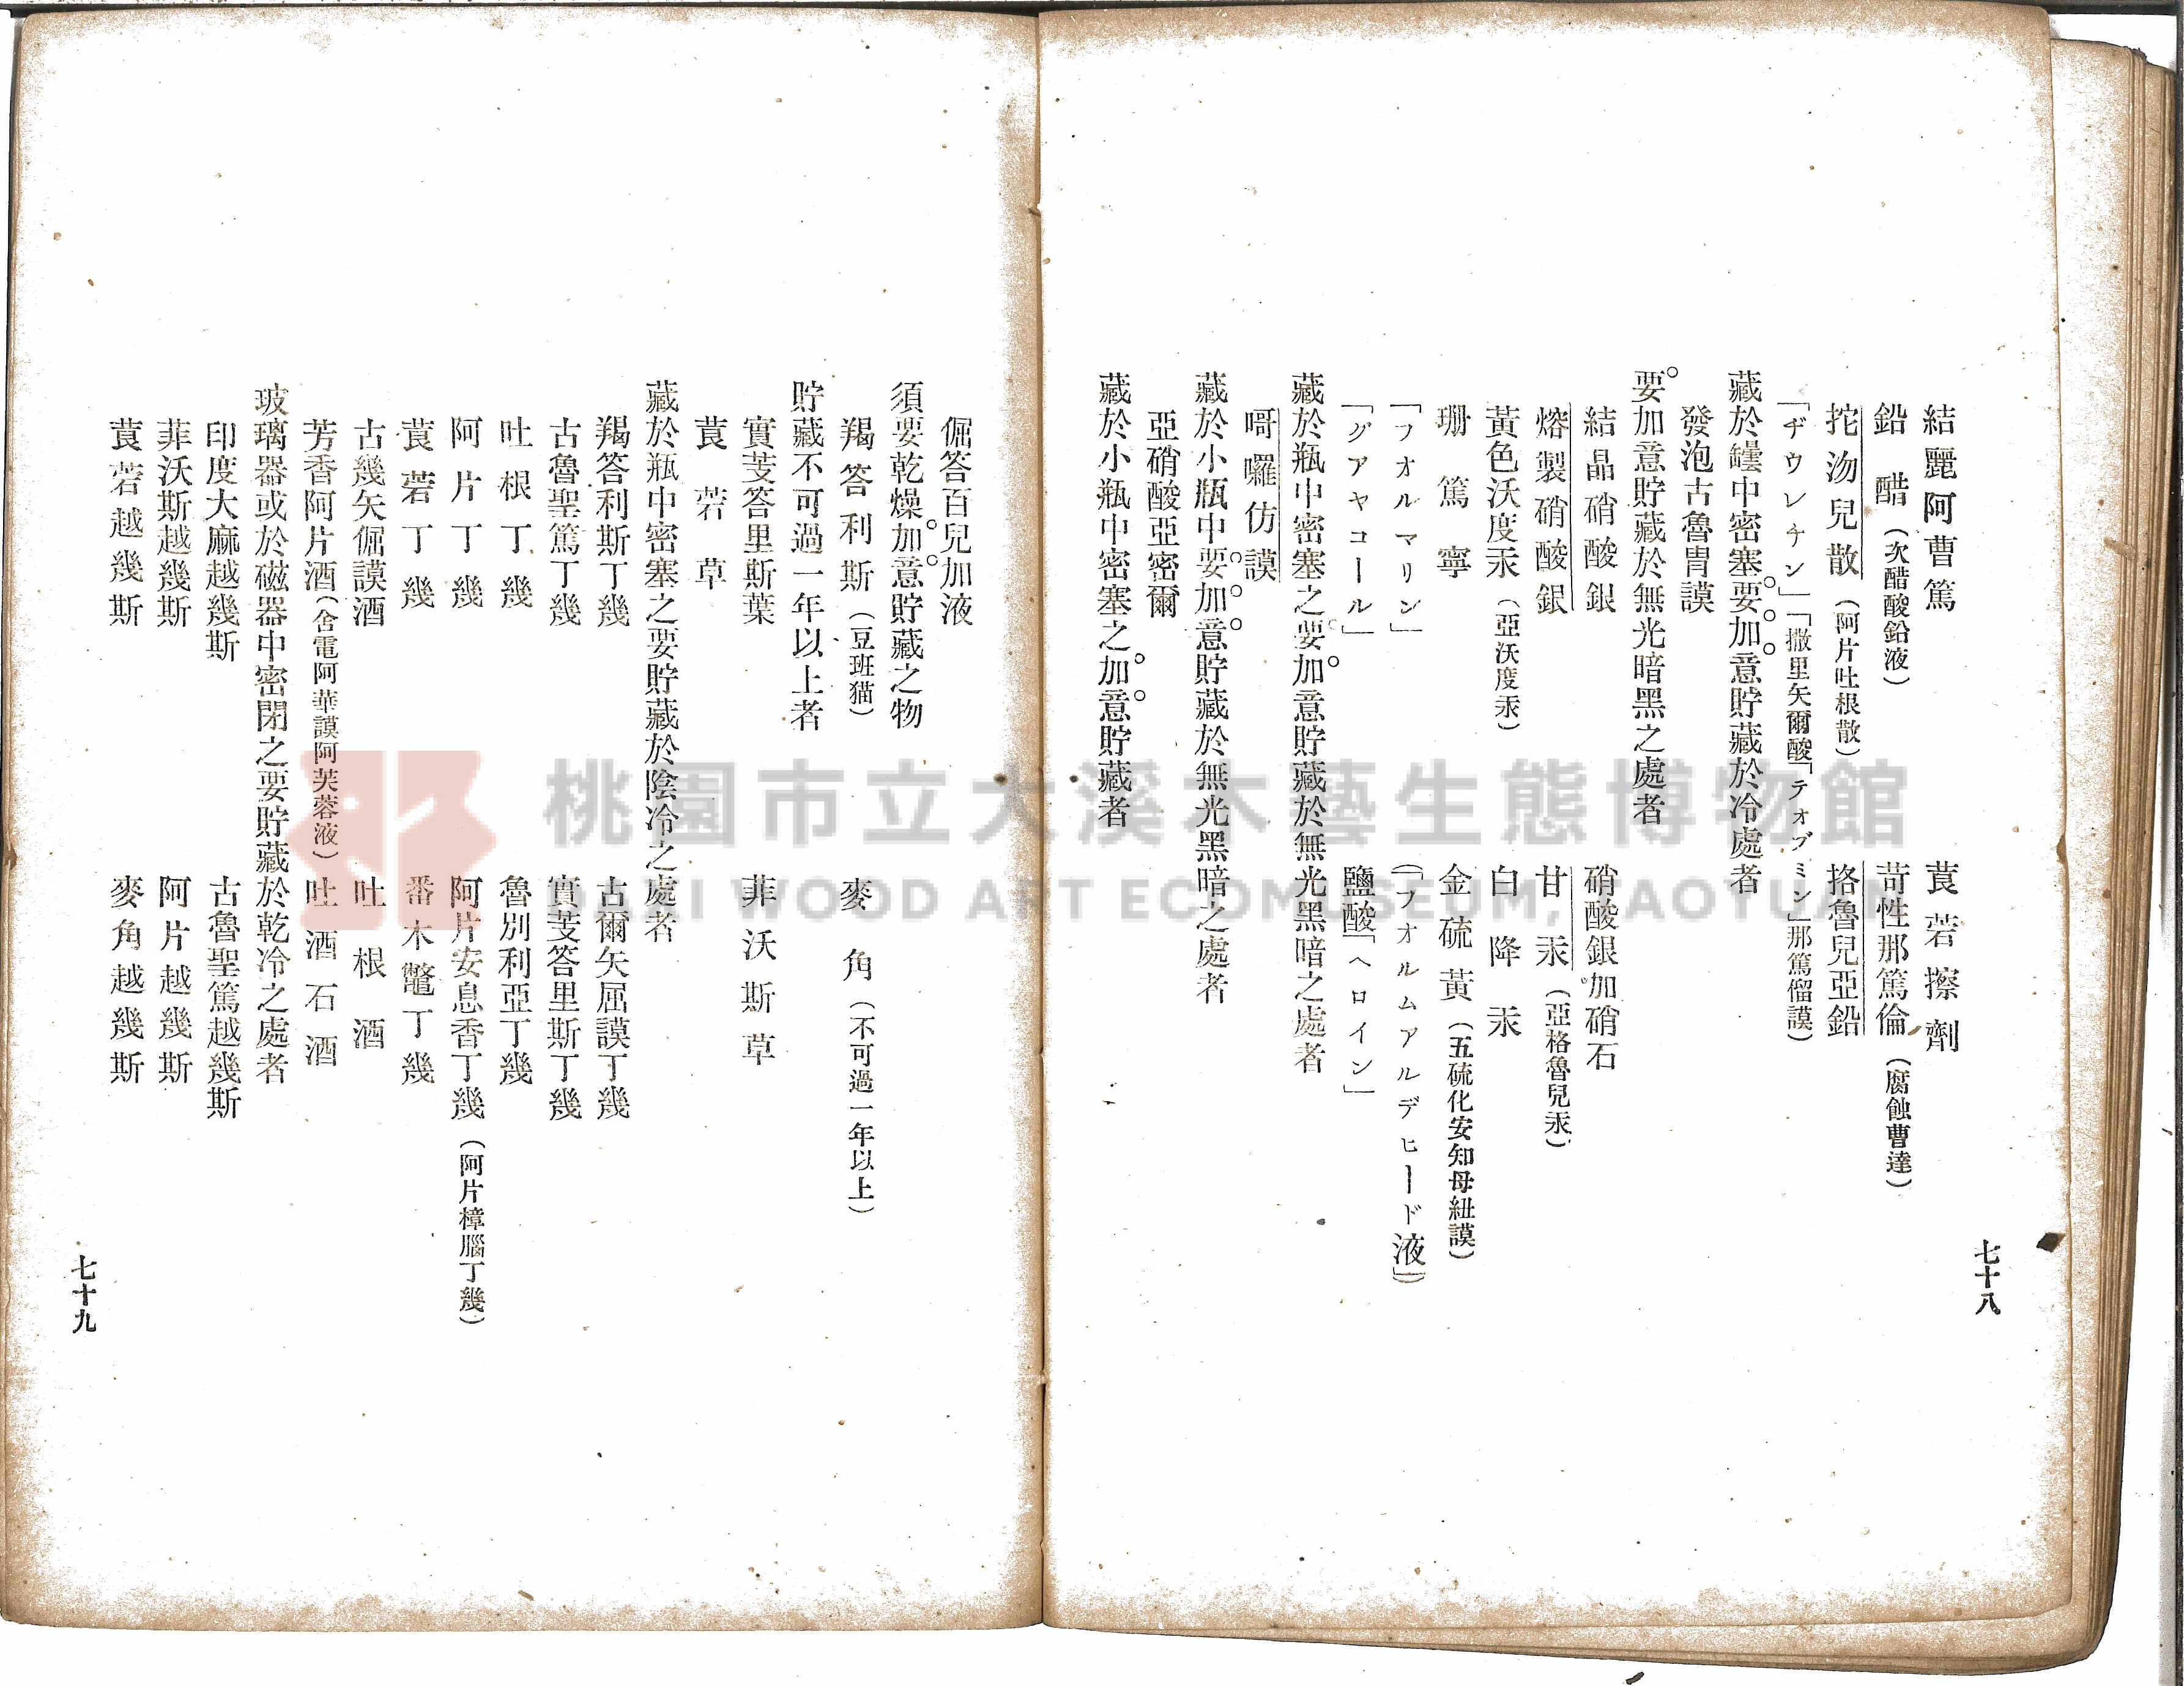 七十八
結麗阿曹篤 莨菪擦劑
鉛醋（次醋酸鉛液） 苛性那篤倫（腐蝕曹達）
扡沕兒散（阿片吐根散） 挌魯兒亞鉛
「ヂウレチン」「撒里矢爾酸「テォブミン」那篤偺謨）
藏於罎中密塞要加意貯藏於冷處者
發泡古魯胄謨
要加意貯藏於無光暗黑之處者
結晶硝酸銀 硝酸銀加硝石
熔製硝酸銀 甘汞（亞格魯兒汞）
黃色沃度汞（亞沃度汞） 白降汞
珊篤寧 金硫黃（五硫化安知母紐謨）
「フオルマリン」 （「フオルムアルデヒード液」）
「グアヤコール」 鹽酸「ヘロイン」
藏於瓶中密塞之要加意貯藏於無光黑暗之處者
哥囉仿謨
藏於小瓶中要加意貯藏於無光黑暗之處者
亞硝酸亞密爾
藏於小瓶中密塞之加意貯藏者
倔答百兒加液
須要乾燥加意貯藏之物
羯答利斯（豆班猫） 麥角（不可過一年以上）
貯藏不可過一年以上者
實芰答里斯葉 菲沃斯草
莨菪草
藏於瓶中密塞之要貯藏於陰冷之處者
羯答利斯丁幾 古爾矢屈謨丁幾
古魯聖篤丁幾 實芰答里斯丁幾
吐根丁幾 魯別利亞丁幾
阿片丁幾 阿片安息香丁幾（阿片樟腦丁幾）
莨菪丁幾 番木鼈丁幾
古幾矢倔謨酒 吐根酒
芳香阿片酒（含電阿華謨阿芙蓉液） 吐酒石酒
玻璃器或於磁器中密閉之要貯藏於乾冷之處者
印度大麻越幾斯 古魯聖篤越幾斯
菲沃斯越幾斯 阿片越幾斯
莨菪越幾斯 麥角越幾斯
七十九
桃園市立大溪木藝生態博物館
DAXI WOOD ART ECOMUSEUM, TAOYUAN